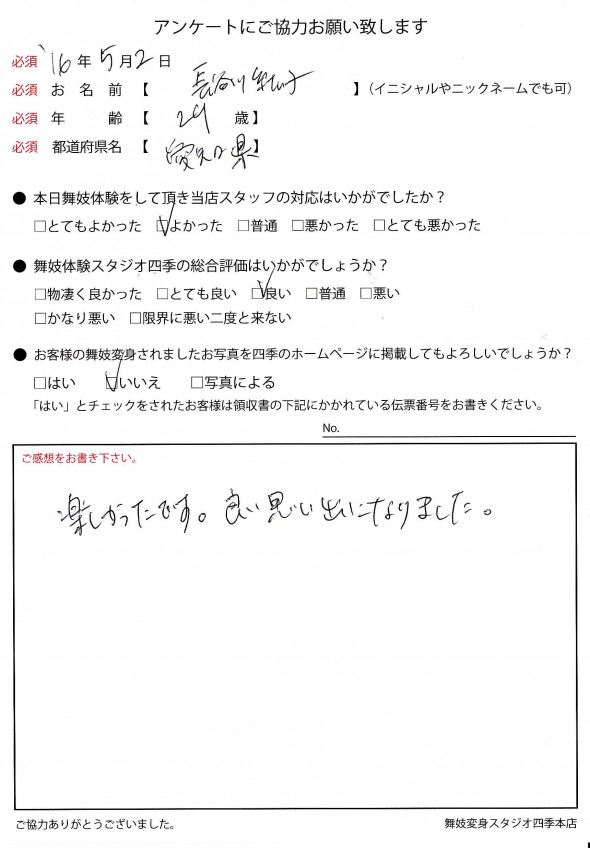 アンケートにご協力お願い致します
必須 '16年5月2日
必須 お名前【 長谷川 子 】(イニシャルやニックネームでも可)
必須 年齢【 29 歳】
必須 都道府県名【 愛知県】
● 本日舞妓体験をして頂き当店スタッフの対応はいかがでしたか?
□とてもよかった ☑よかった □普通 □悪かった □とても悪かった
● 舞妓体験スタジオ四季の総合評価はいかがでしょうか?
□物凄く良かった □とても良い ☑良い □普通 □悪い
□かなり悪い □限界に悪い二度と来ない
● お客様の舞妓変身されましたお写真を四季のホームページに掲載してもよろしいでしょうか?
□はい ☑いいえ □写真による
「はい」とチェックをされたお客様は領収書の下記にかかれている伝票番号をお書きください。
No.
ご感想をお書き下さい。
楽しかったです。良い思い出になりました。
ご協力ありがとうございました。 舞妓変身スタジオ四季本店